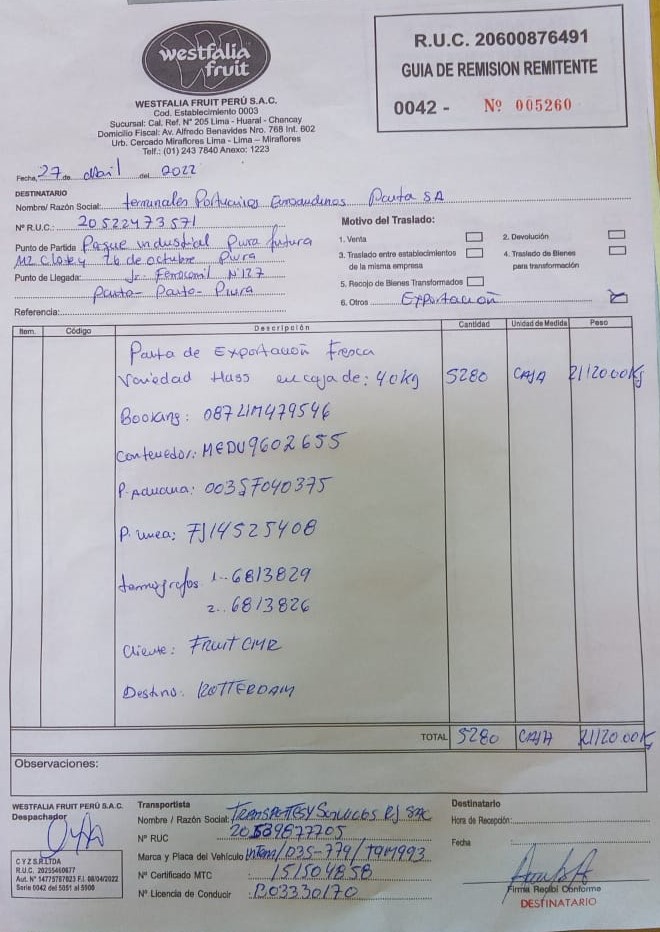 westfalia
fruit
WESTFALIA FRUIT PERÚ S.A.C.
Cod. Establecimiento 0003
Sucursal: Cal. Ref. N° 205 Lima - Huaral - Chancay
Domicilio Fiscal: Av. Alfredo Benavides Nro. 768 Int. 602
Urb. Cercado Miraflores Lima - Lima - Miraflores
Telf.: (01) 243 7840 Anexo: 1223
R.U.C. 20600876491
GUIA DE REMISION REMITENTE
0042 - Nº 005260
Fecha, 27 de Abril del 2022
DESTINATARIO
Nombre/ Razón Social: Terminales Portuarios Euroandinos Paita SA
N° R.U.C.: 20522473571
Punto de Partida Parque industrial Piura futura
M2 Clote4 26 de octubre Piura
Punto de Llegada: Jr. Ferrocarril N°127
Paita - Paita - Piura
Referencia:
Motivo del Traslado:
1. Venta
2. Devolución
3. Traslado entre establecimientos
de la misma empresa
4. Traslado de Bienes
para transformación
5. Recojo de Bienes Transformados
6. Otros Exportación
Item. Código Descripción Cantidad Unidad de Medida Peso
Palta de Exportación Fresca
Variedad Hass en caja de: 40kg 5280 CAJA 21120.00Kg
Booking: 087LIM479546
Contenedor: MEDU9602655
P. Aduana: 00357040375
P. Linea: FJ14525408
termografos 1.. 6813829
2.. 6813826
Cliente: FRUIT CMR
Destino: ROTTERDAM
TOTAL 5280 CAJA 21120.00Kg
Observaciones:
WESTFALIA FRUIT PERÚ S.A.C.
Despachador
C Y Z S.R.LTDA
R.U.C. 20255460677
Aut. N° 14775787823 F.I. 08/04/2022
Serie 0042 del 5051 al 5900
Transportista
Nombre / Razón Social: TRANSPORTES Y Servicios RJ SAC
N° RUC 20539877705
Marca y Placa del Vehículo D35-779/T9M993
N° Certificado MTC 151504858
N° Licencia de Conducir B03330170
Destinatario
Hora de Recepción:
Fecha
Firma Recibi Conforme
DESTINATARIO